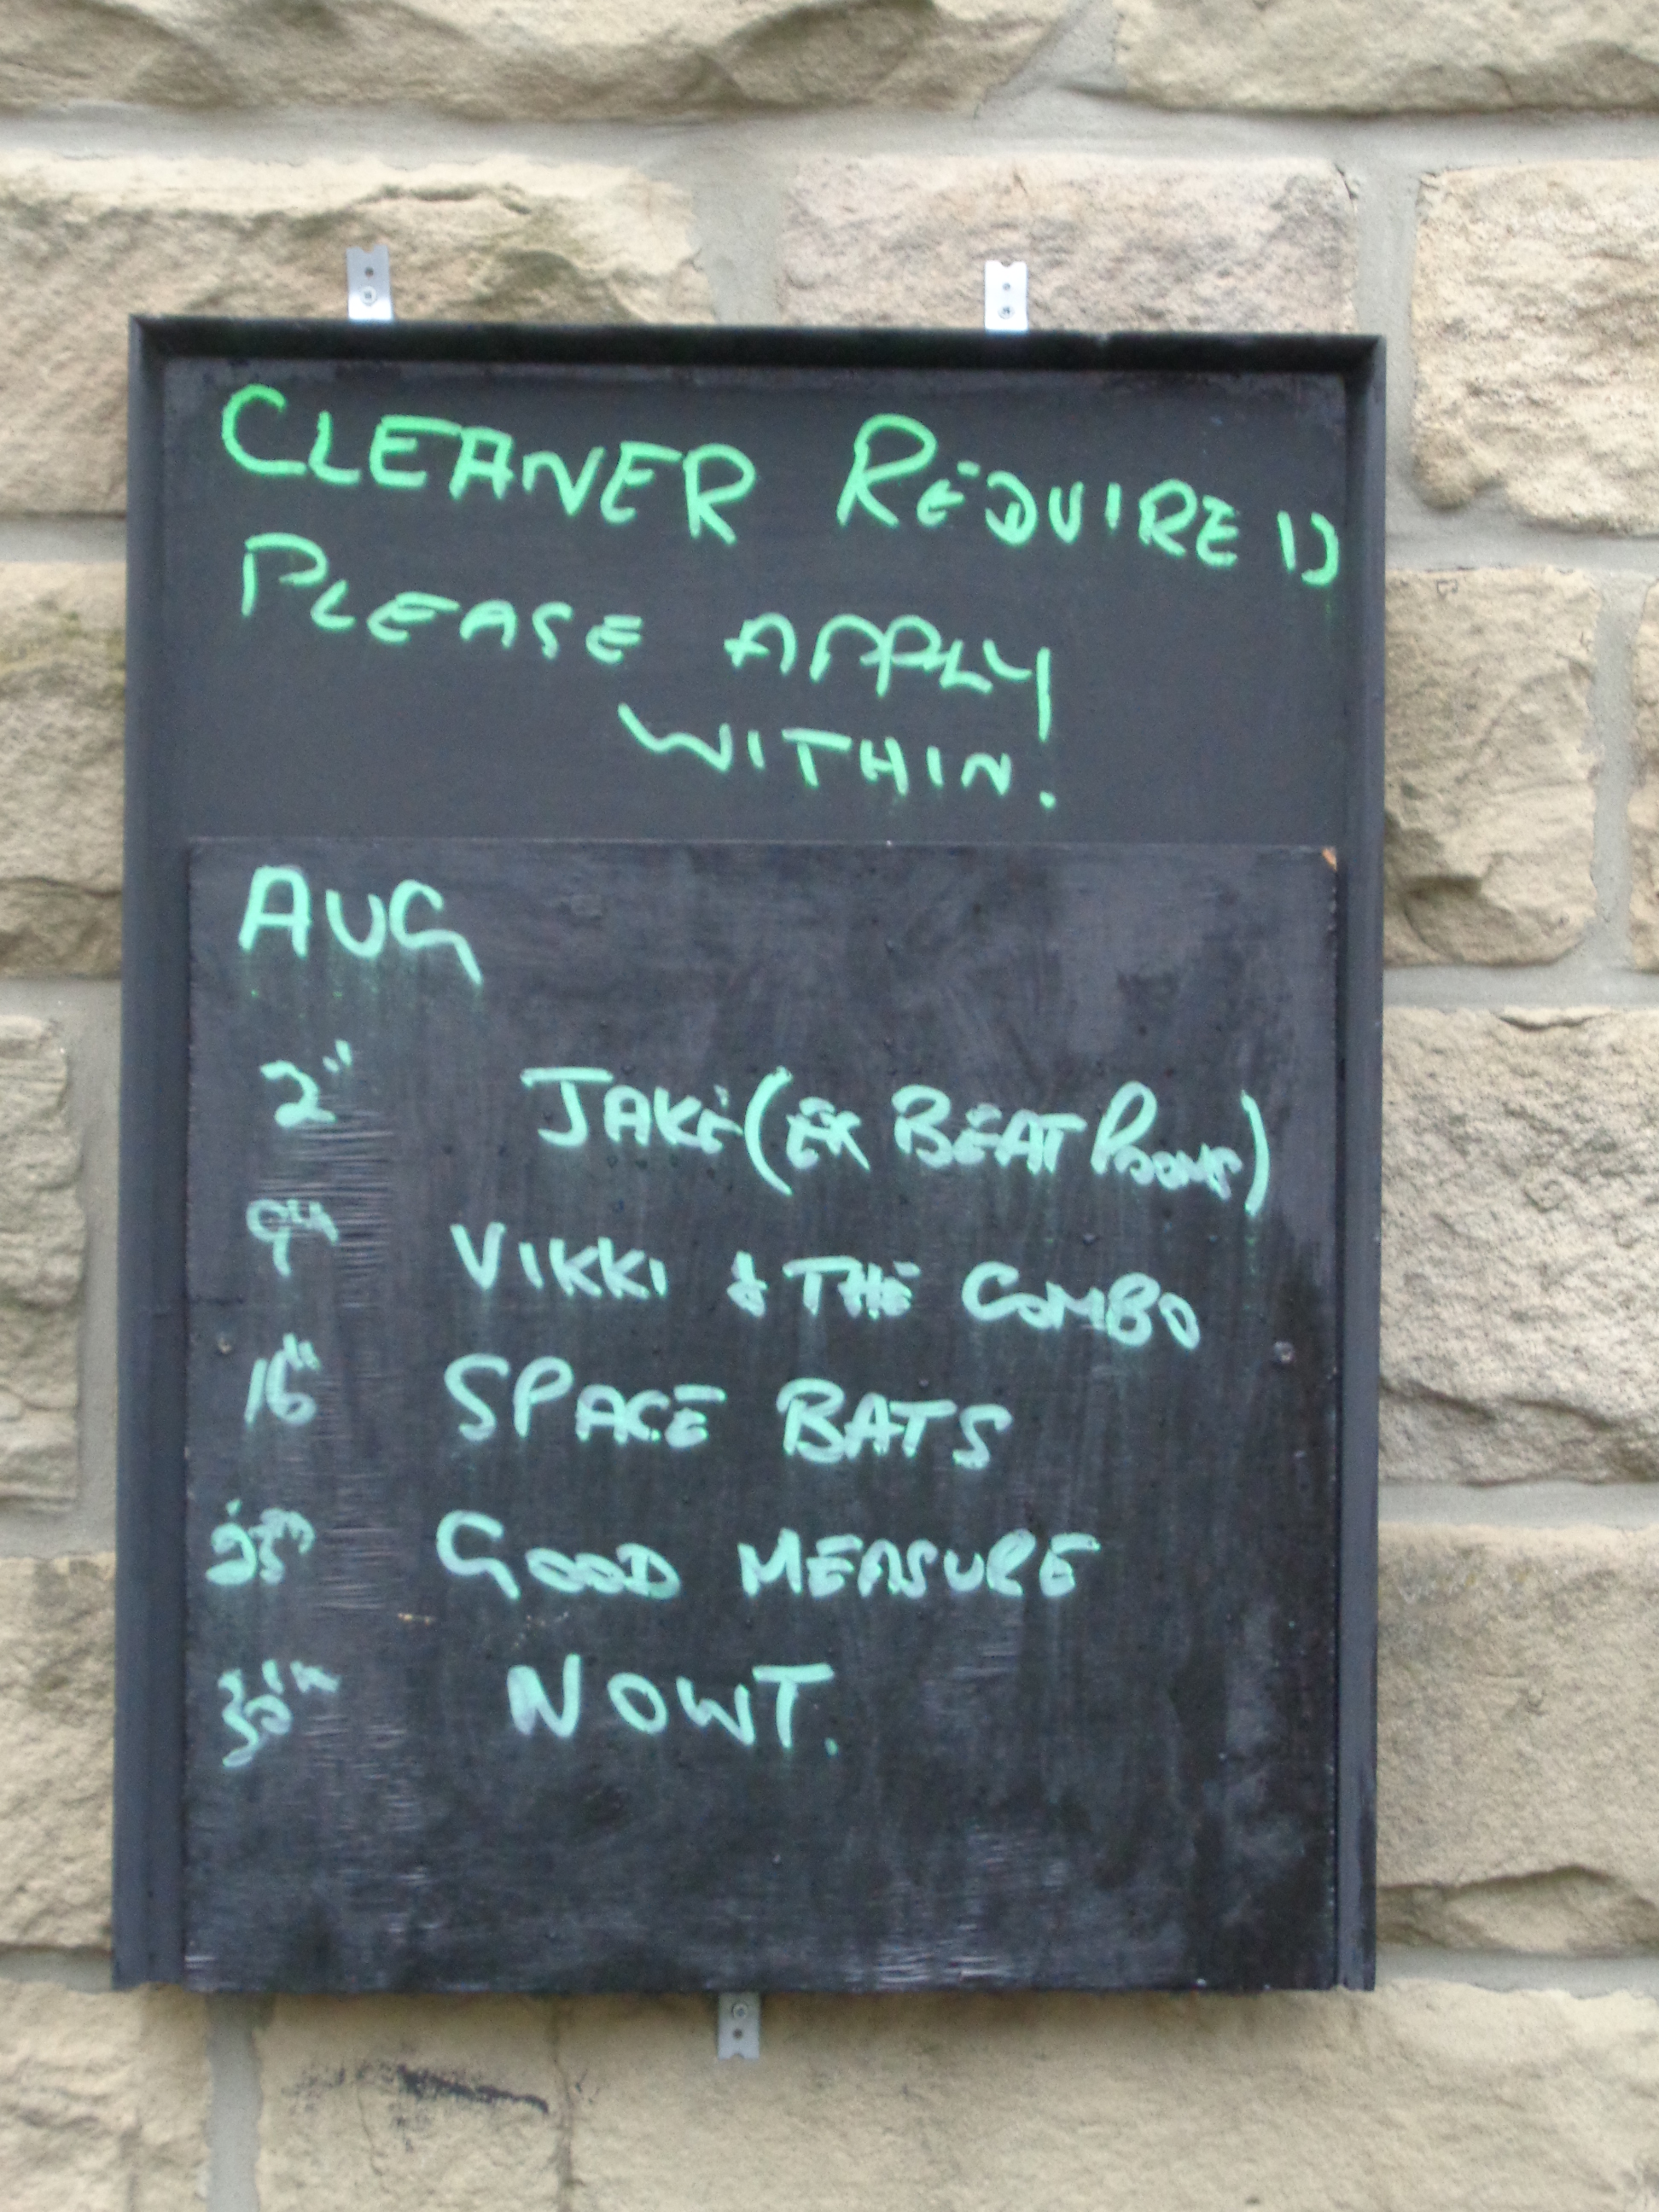 CLEANER REQUIRED
PLEASE APPLY
WITHIN.
AUG
2" JAKE (EX BEAT ROOMS)
9th VIKKI & THE COMBO
16th SPACE BATS
GOOD MEASURE
30th NOWT.